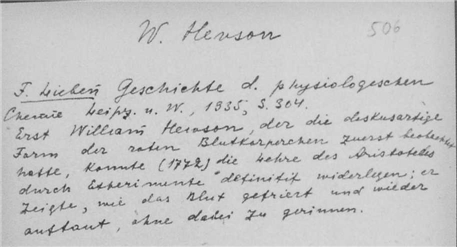 W. Hewson
506
F. Lieben Geschichte d. physiologeschen
Chemie Leipz. u. W., 1935, S. 304.
Erst William Hewson, der die diskusartige
Form der roten Blutkörperchen zuerst beobachtet
hatte, konnte (1772) die Lehre des Aristoteles
durch Experimente definitif widerlegen; er
zeigte, wie das Blut gefriert und wieder
auftaut, ohne dabei zu gerinnen.